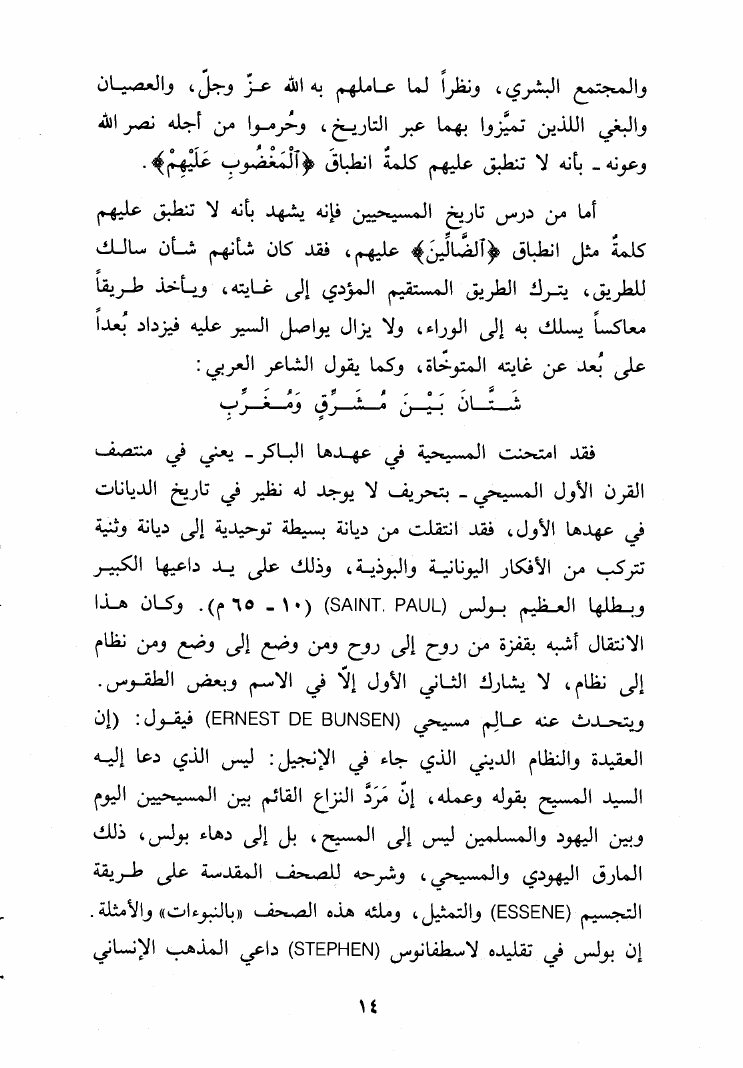 والمجتمع البشري، ونظراً لما عاملهم به الله عزّ وجلّ، والعصيان
والبغي اللذين تميَّزوا بهما عبر التاريخ، وحُرموا من أجله نصر الله
وعونه - بأنه لا تنطبق عليهم كلمةٌ انطباقَ ﴿ٱلْمَغْضُوبِ عَلَيْهِمْ﴾.
أما من درس تاريخ المسيحيين فإنه يشهد بأنه لا تنطبق عليهم
كلمةٌ مثل انطباق ﴿ٱلضَّالِّينَ﴾ عليهم، فقد كان شأنهم شأن سالك
للطريق، يترك الطريق المستقيم المؤدي إلى غايته، ويأخذ طريقاً
معاكساً يسلك به إلى الوراء، ولا يزال يواصل السير عليه فيزداد بُعداً
على بُعد عن غايته المتوخّاة، وكما يقول الشاعر العربي:
شَتَّانَ بَيْنَ مُشَرِّقٍ وَمُغَرِّبِ
فقد امتحنت المسيحية في عهدها الباكر - يعني في منتصف
القرن الأول المسيحي - بتحريف لا يوجد له نظير في تاريخ الديانات
في عهدها الأول، فقد انتقلت من ديانة بسيطة توحيدية إلى ديانة وثنية
تتركب من الأفكار اليونانية والبوذية، وذلك على يد داعيها الكبير
وبطلها العظيم بولس (SAINT. PAUL) (١٠ - ٦٥ م). وكان هذا
الانتقال أشبه بقفزة من روح إلى روح ومن وضع إلى وضع ومن نظام
إلى نظام، لا يشارك الثاني الأول إلّا في الاسم وبعض الطقوس.
ويتحدث عنه عالِم مسيحي (ERNEST DE BUNSEN) فيقول: (إن
العقيدة والنظام الديني الذي جاء في الإنجيل: ليس الذي دعا إليه
السيد المسيح بقوله وعمله، إنّ مَرَدَّ النزاع القائم بين المسيحيين اليوم
وبين اليهود والمسلمين ليس إلى المسيح، بل إلى دهاء بولس، ذلك
المارق اليهودي والمسيحي، وشرحه للصحف المقدسة على طريقة
التجسيم (ESSENE) والتمثيل، وملئه هذه الصحف «بالنبوءات» والأمثلة.
إن بولس في تقليده لاسطفانوس (STEPHEN) داعي المذهب الإنساني
١٤